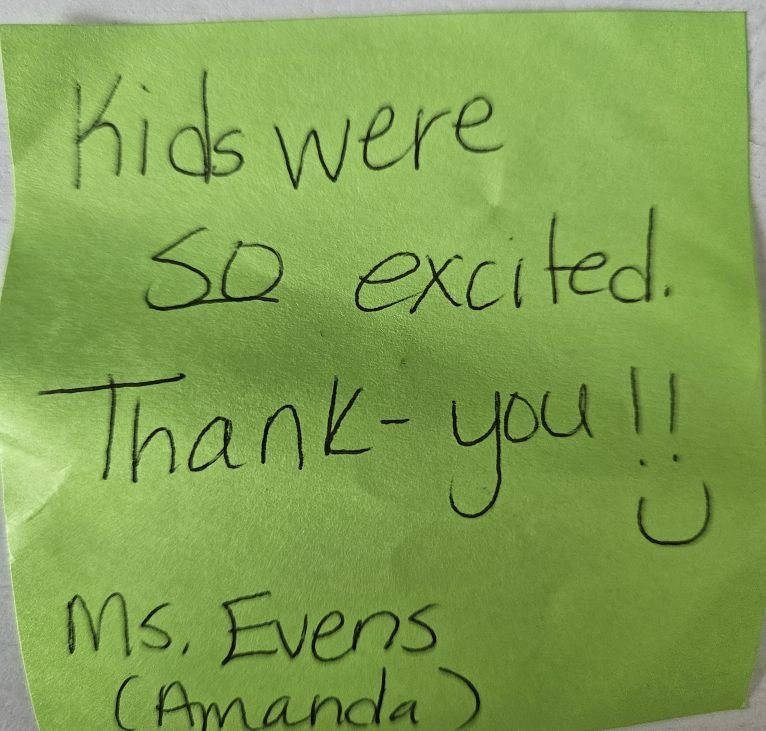 Kids were
so excited.
Thank-you!!
Ms. Evens
(Amanda)